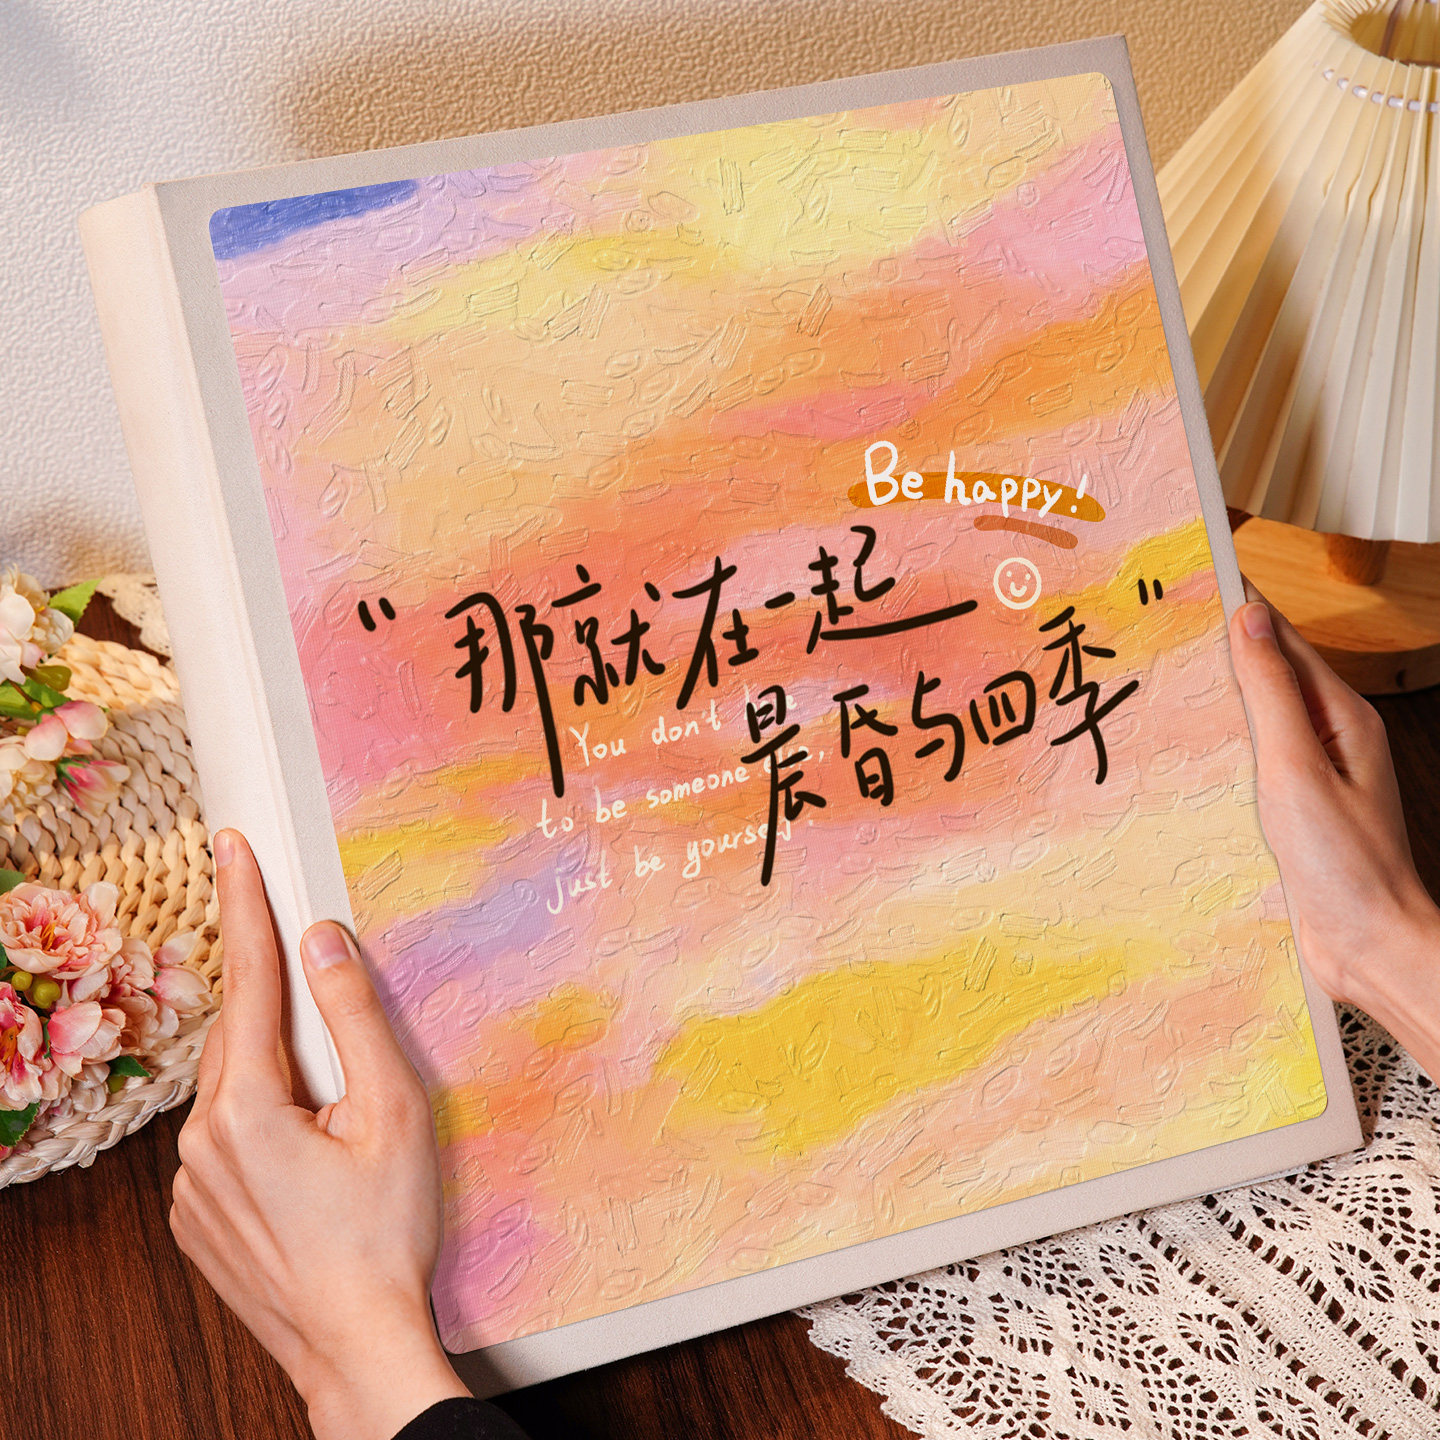 Be happy!
"那就在一起
晨昏与四季"
You don't
to be someone
just be yourself.